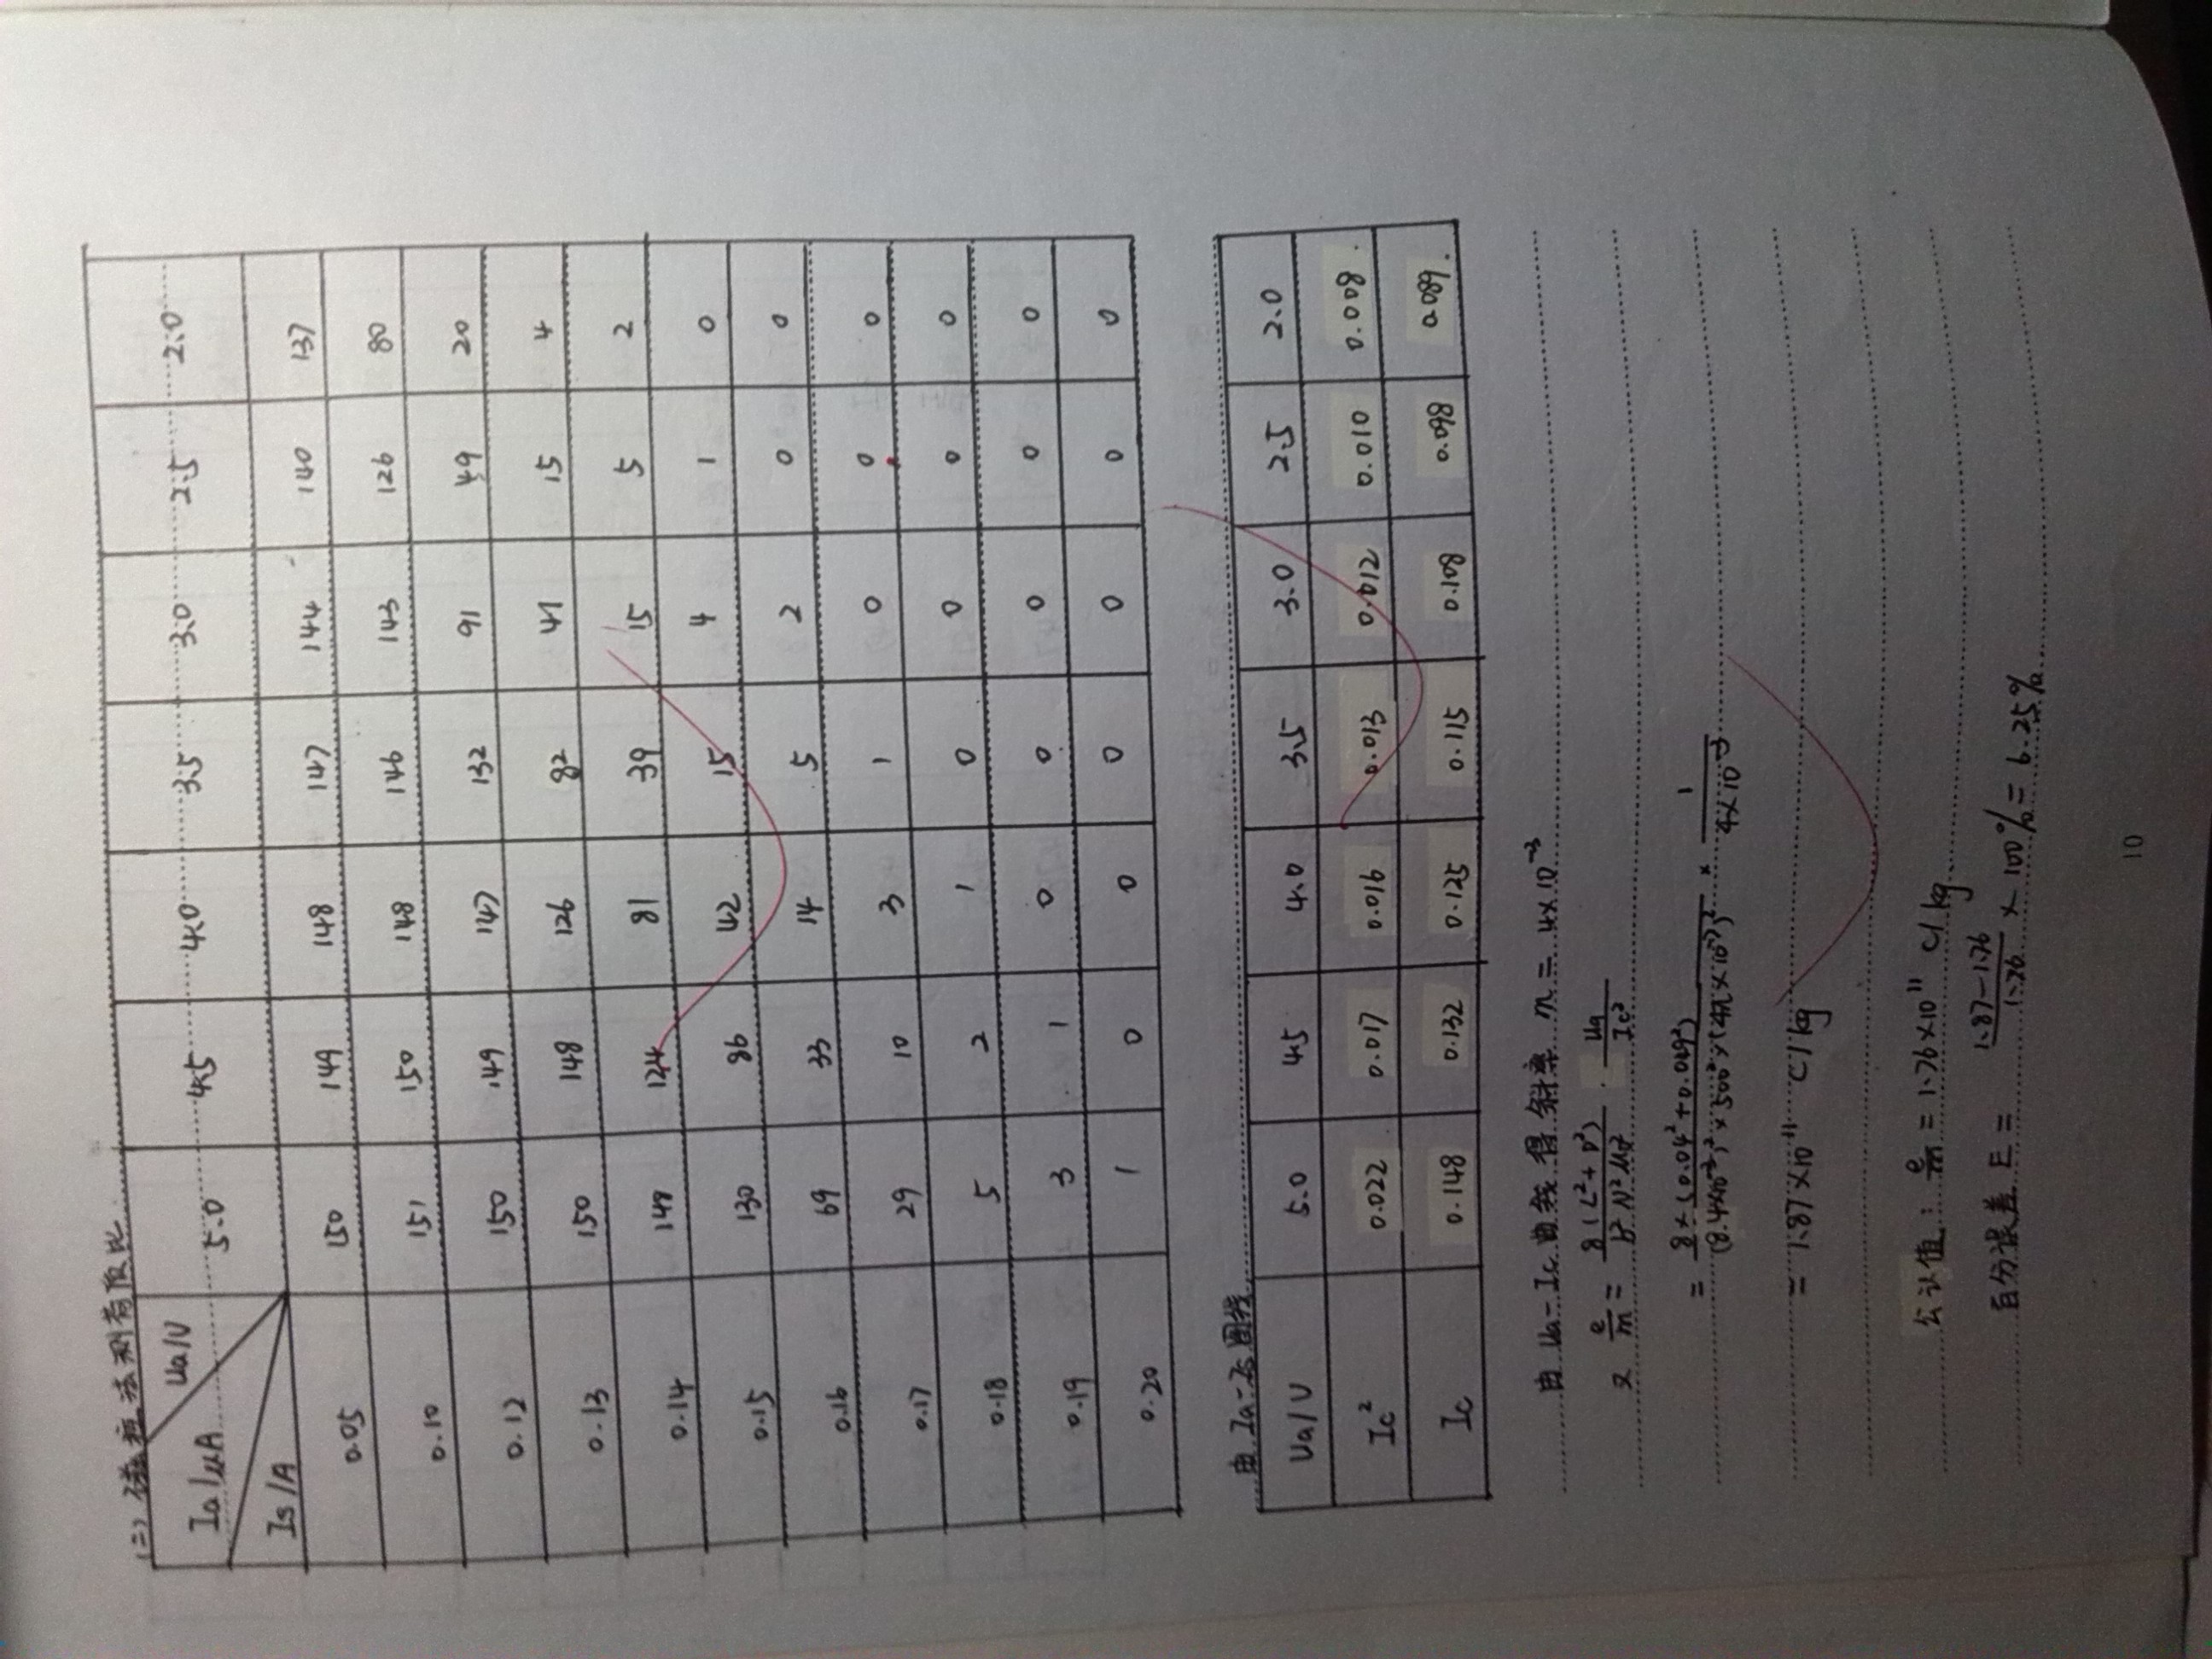 (二) 磁控法测荷质比
Ia/μA Ua/V 5.0 4.5 4.0 3.5 3.0 2.5 2.0
Is/A
0.05 150 149 148 147 144 140 137
0.10 151 150 148 146 143 126 80
0.12 150 149 147 132 91 49 20
0.13 150 148 126 82 41 15 4
0.14 149 124 81 39 15 5 2
0.15 130 86 42 15 4 1 0
0.16 69 33 14 5 2 0 0
0.17 29 10 3 1 0 0 0
0.18 5 2 1 0 0 0 0
0.19 3 1 0 0 0 0 0
0.20 1 0 0 0 0 0 0
由 Ia-Is 图线
Ua/V 5.0 4.5 4.0 3.5 3.0 2.5 2.0
Ic² 0.022 0.017 0.016 0.013 0.012 0.010 0.008
Ic 0.148 0.132 0.125 0.115 0.108 0.098 0.089
由 Ua-Ic 曲线得斜率 m = 4×10⁻³
又 e/m = 8(L²+D²)/b²N²μ₀² · Ua/Ic²
= 8×(0.04²+0.049²)/(8.4×10⁻³)²×500²×(4π×10⁻⁷)² × 1/4×10⁻³
= 1.87×10¹¹ C/kg
公认值: e/m = 1.76×10¹¹ C/kg
百分误差 E = 1.87-1.76/1.76 × 100% = 6.25%
10